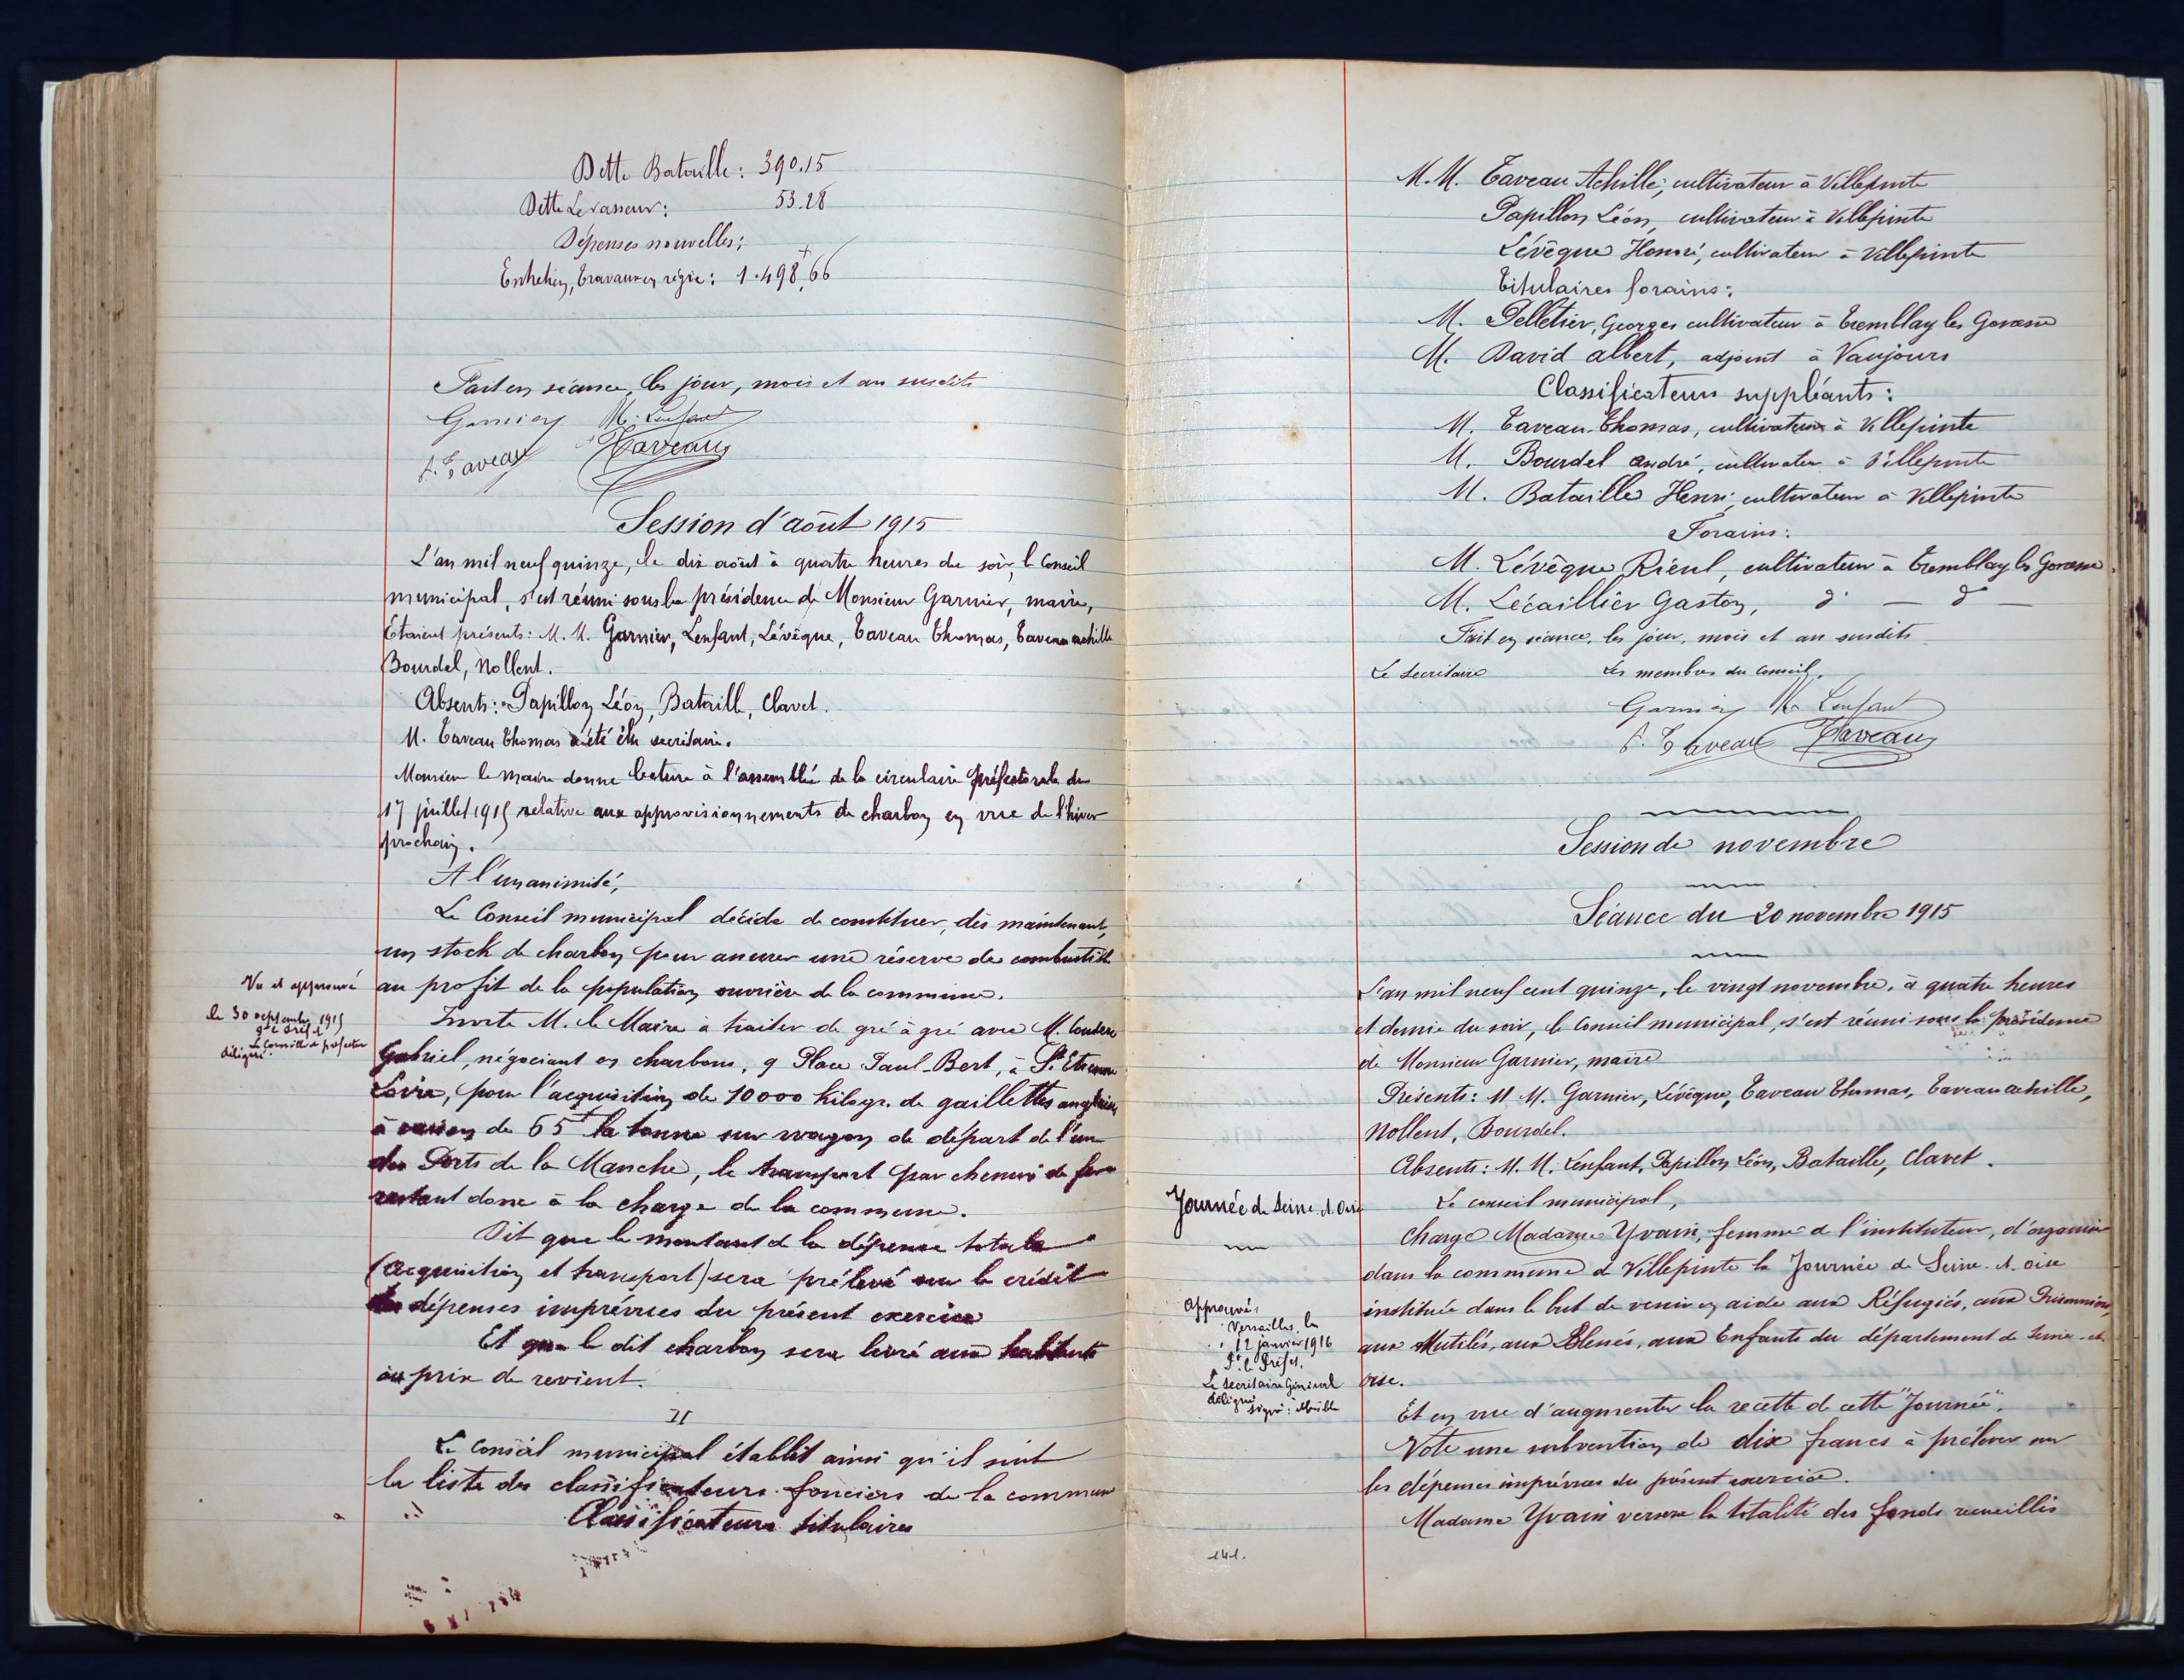 Dette Bataille: 390.15
Dette Levasseur: 53.28
Dépenses nouvelles:
Entretien, travaux en régie: 1.498,66
Fait en séance, les jour, mois et an susdits
Garnier M. Lenfant
A. Taveau Taveau
Session d'août 1915
L'an mil neuf quinze, le dix août à quatre heures du soir, le Conseil
municipal, s'est réuni sous la présidence de Monsieur Garnier, maire,
Etaient présents: M. M. Garnier, Lenfant, Lévêque, Taveau Thomas, Taveau achille
Bourdel, Nollent.
Absents: Papillon Léon, Bataille, Clavet.
M. Taveau Thomas a été élu secrétaire.
Monsieur le maire donne lecture à l'assemblée de la circulaire préfectorale du
17 juillet 1915 relative aux approvisionnements de charbon en vue de l'hiver
prochain.
A l'unanimité,
Le Conseil municipal décide de constituer, dès maintenant,
un stock de charbon pour assurer une réserve de combustible
au profit de la population ouvrière de la commune.
Vu et approuvé
le 30 septembre 1915
Pr le Préfet
Le Conseiller de préfecture
délégué.
Invite M. le Maire à traiter de gré à gré avec M.
Gabriel, négociant en charbons, 9 Place Paul-Bert, à St. Etienne
Loire, pour l'acquisition de 10000 kilogr. de gaillettes anglaises
à raison de 65f la tonne sur wagon de départ de l'un
des Ports de la Manche, le transport par chemin de fer
restant donc à la charge de la commune.
Dit que le montant de la dépense totale
(acquisition et transport) sera prélevé sur le crédit
des dépenses imprévues du présent exercice
Et que le dit charbon sera livré aux habitants
au prix de revient.
II
Le Conseil municipal établit ainsi qu'il suit
la liste des classificateurs fonciers de la commune
Classificateurs titulaires
M.M. Taveau Achille, cultivateur à Villepinte
Papillon Léon, cultivateur à Villepinte
Lévêque Honoré, cultivateur à Villepinte
Titulaires forains:
M. Pelletier, Georges cultivateur à Tremblay les Gonesse
M. David albert, adjoint à Vaujours
Classificateurs suppléants:
M. Taveau-Thomas, cultivateur à Villepinte
M. Bourdel andré, cultivateur à Villepinte
M. Bataille Henri, cultivateur à Villepinte
Forains:
M. Lévêque Rieul, cultivateur à Tremblay les Gonesse.
M. Lécaillier Gaston, do — do —
Fait en séance, les jour, mois et an susdits
Le Secrétaire Les membres du conseil,
Garnier M. Lenfant
A. Taveau Taveau
Session de novembre
Séance du 20 novembre 1915
L'an mil neuf cent quinze, le vingt novembre, à quatre heures
et demie du soir, le Conseil municipal, s'est réuni sous la présidence
de Monsieur Garnier, maire
Présents: M M. Garnier, Lévêque, Taveau Thomas, Taveau achille,
Nollent, Bourdel.
Absents: M. M. Lenfant, Papillon Léon, Bataille, Clavet.
Journée de Seine et Oise
Le conseil municipal,
Charge Madame Yvain, femme de l'instituteur, d'organiser
dans la commune de Villepinte la Journée de Seine et oise
instituée dans le but de venir en aide aux Réfugiés, aux Prisonniers,
aux Mutilés, aux Blessés, aux Enfants du département de Seine-et-
oise.
Approuvé:
Versailles, le
12 janvier 1916
Pr. le Préfet,
Le Secrétaire Général
délégué
signé:
Et en vue d'augmenter la recette de cette "Journée",
Vote une subvention de dix francs à prélever sur
les dépenses imprévues du présent exercice.
Madame Yvain versera la totalité des fonds recueillis
141.